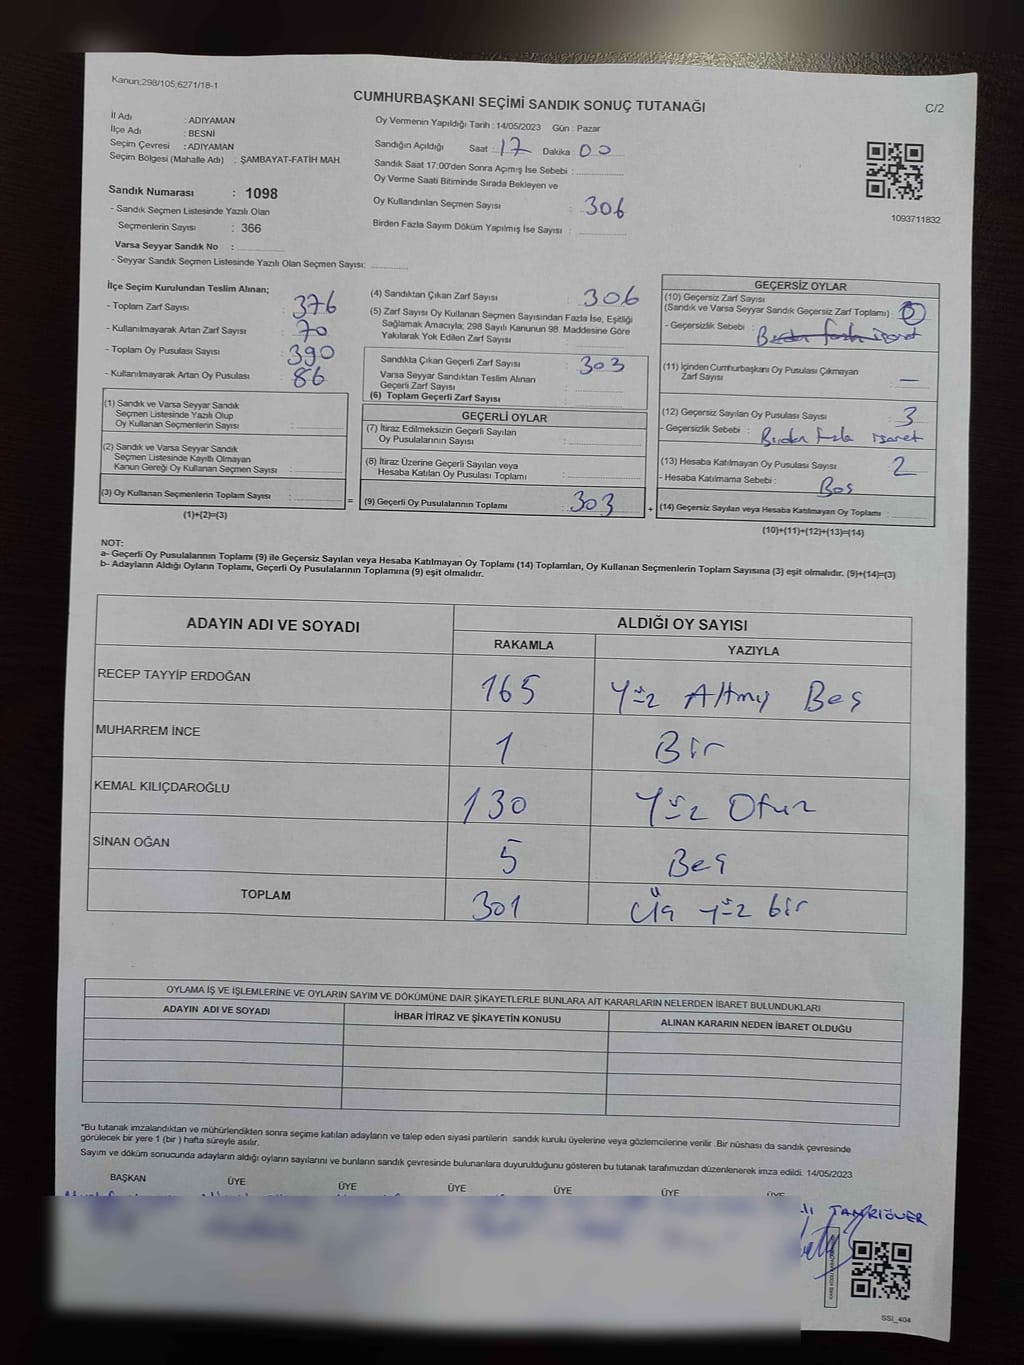 Kanun;298/105,6271/18-1
CUMHURBAŞKANI SEÇİMİ SANDIK SONUÇ TUTANAĞI
C/2
İl Adı : ADIYAMAN
İlçe Adı : BESNİ
Seçim Çevresi : ADIYAMAN
Seçim Bölgesi (Mahalle Adı) : ŞAMBAYAT-FATİH MAH.
Sandık Numarası : 1098
- Sandık Seçmen Listesinde Yazılı Olan
Seçmenlerin Sayısı : 366
Varsa Seyyar Sandık No :
- Seyyar Sandık Seçmen Listesinde Yazılı Olan Seçmen Sayısı:
Oy Vermenin Yapıldığı Tarih : 14/05/2023 Gün : Pazar
Sandığın Açıldığı Saat : 17 Dakika : 00
Sandık Saat 17:00'den Sonra Açımış İse Sebebi :
Oy Verme Saati Bitiminde Sırada Bekleyen ve
Oy Kullandırılan Seçmen Sayısı : 306
Birden Fazla Sayım Döküm Yapılmış İse Sayısı :
1093711832
İlçe Seçim Kurulundan Teslim Alınan;
- Toplam Zarf Sayısı : 376
- Kullanılmayarak Artan Zarf Sayısı : 70
- Toplam Oy Pusulası Sayısı : 390
- Kullanılmayarak Artan Oy Pusulası : 86
(1) Sandık ve Varsa Seyyar Sandık
Seçmen Listesinde Yazılı Olup
Oy Kullanan Seçmenlerin Sayısı :
(2) Sandık ve Varsa Seyyar Sandık
Seçmen Listesinde Kayıtlı Olmayan
Kanun Gereği Oy Kullanan Seçmen Sayısı :
(3) Oy Kullanan Seçmenlerin Toplam Sayısı :
(1)+(2)=(3)
=
(4) Sandıktan Çıkan Zarf Sayısı : 306
(5) Zarf Sayısı Oy Kullanan Seçmen Sayısından Fazla İse, Eşitliği
Sağlamak Amacıyla; 298 Sayılı Kanunun 98. Maddesine Göre
Yakılarak Yok Edilen Zarf Sayısı
Sandıkta Çıkan Geçerli Zarf Sayısı : 303
Varsa Seyyar Sandıktan Teslim Alınan
Geçerli Zarf Sayısı :
(6) Toplam Geçerli Zarf Sayısı :
GEÇERLİ OYLAR
(7) İtiraz Edilmeksizin Geçerli Sayılan
Oy Pusulalarının Sayısı :
(8) İtiraz Üzerine Geçerli Sayılan veya
Hesaba Katılan Oy Pusulası Toplamı :
(9) Geçerli Oy Pusulalarının Toplamı : 303
+
GEÇERSİZ OYLAR
(10) Geçersiz Zarf Sayısı
(Sandık ve Varsa Seyyar Sandık Geçersiz Zarf Toplamı) :
- Geçersizlik Sebebi : Birden fazla işaret
(11) İçinden Cumhurbaşkanı Oy Pusulası Çıkmayan
Zarf Sayısı : —
(12) Geçersiz Sayılan Oy Pusulası Sayısı : 3
- Geçersizlik Sebebi : Birden fazla işaret
(13) Hesaba Katılmayan Oy Pusulası Sayısı : 2
- Hesaba Katılmama Sebebi : Boş
(14) Geçersiz Sayılan veya Hesaba Katılmayan Oy Toplamı :
(10)+(11)+(12)+(13)=(14)
NOT:
a- Geçerli Oy Pusulalarının Toplamı (9) ile Geçersiz Sayılan veya Hesaba Katılmayan Oy Toplamı (14) Toplamları, Oy Kullanan Seçmenlerin Toplam Sayısına (3) eşit olmalıdır. (9)+(14)=(3)
b- Adayların Aldığı Oyların Toplamı, Geçerli Oy Pusulalarının Toplamına (9) eşit olmalıdır.
ADAYIN ADI VE SOYADI
ALDIĞI OY SAYISI
RAKAMLA YAZIYLA
RECEP TAYYİP ERDOĞAN 165 Yüz Altmış Beş
MUHARREM İNCE 1 Bir
KEMAL KILIÇDAROĞLU 130 Yüz Otuz
SİNAN OĞAN 5 Beş
TOPLAM 301 Üç yüz bir
OYLAMA İŞ VE İŞLEMLERİNE VE OYLARIN SAYIM VE DÖKÜMÜNE DAİR ŞİKAYETLERLE BUNLARA AİT KARARLARIN NELERDEN İBARET BULUNDUKLARI
ADAYIN ADI VE SOYADI İHBAR İTİRAZ VE ŞİKAYETİN KONUSU ALINAN KARARIN NEDEN İBARET OLDUĞU
*Bu tutanak imzalandıktan ve mühürlendikten sonra seçime katılan adayların ve talep eden siyasi partilerin sandık kurulu üyelerine veya gözlemcilerine verilir .Bir nüshası da sandık çevresinde
görülecek bir yere 1 (bir ) hafta süreyle asılır.
Sayım ve döküm sonucunda adayların aldığı oyların sayılarını ve bunların sandık çevresinde bulunanlara duyurulduğunu gösteren bu tutanak tarafımızdan düzenlenerek imza edildi. 14/05/2023
BAŞKAN ÜYE ÜYE ÜYE ÜYE ÜYE ÜYE
TANRIÖVER
SSI_404